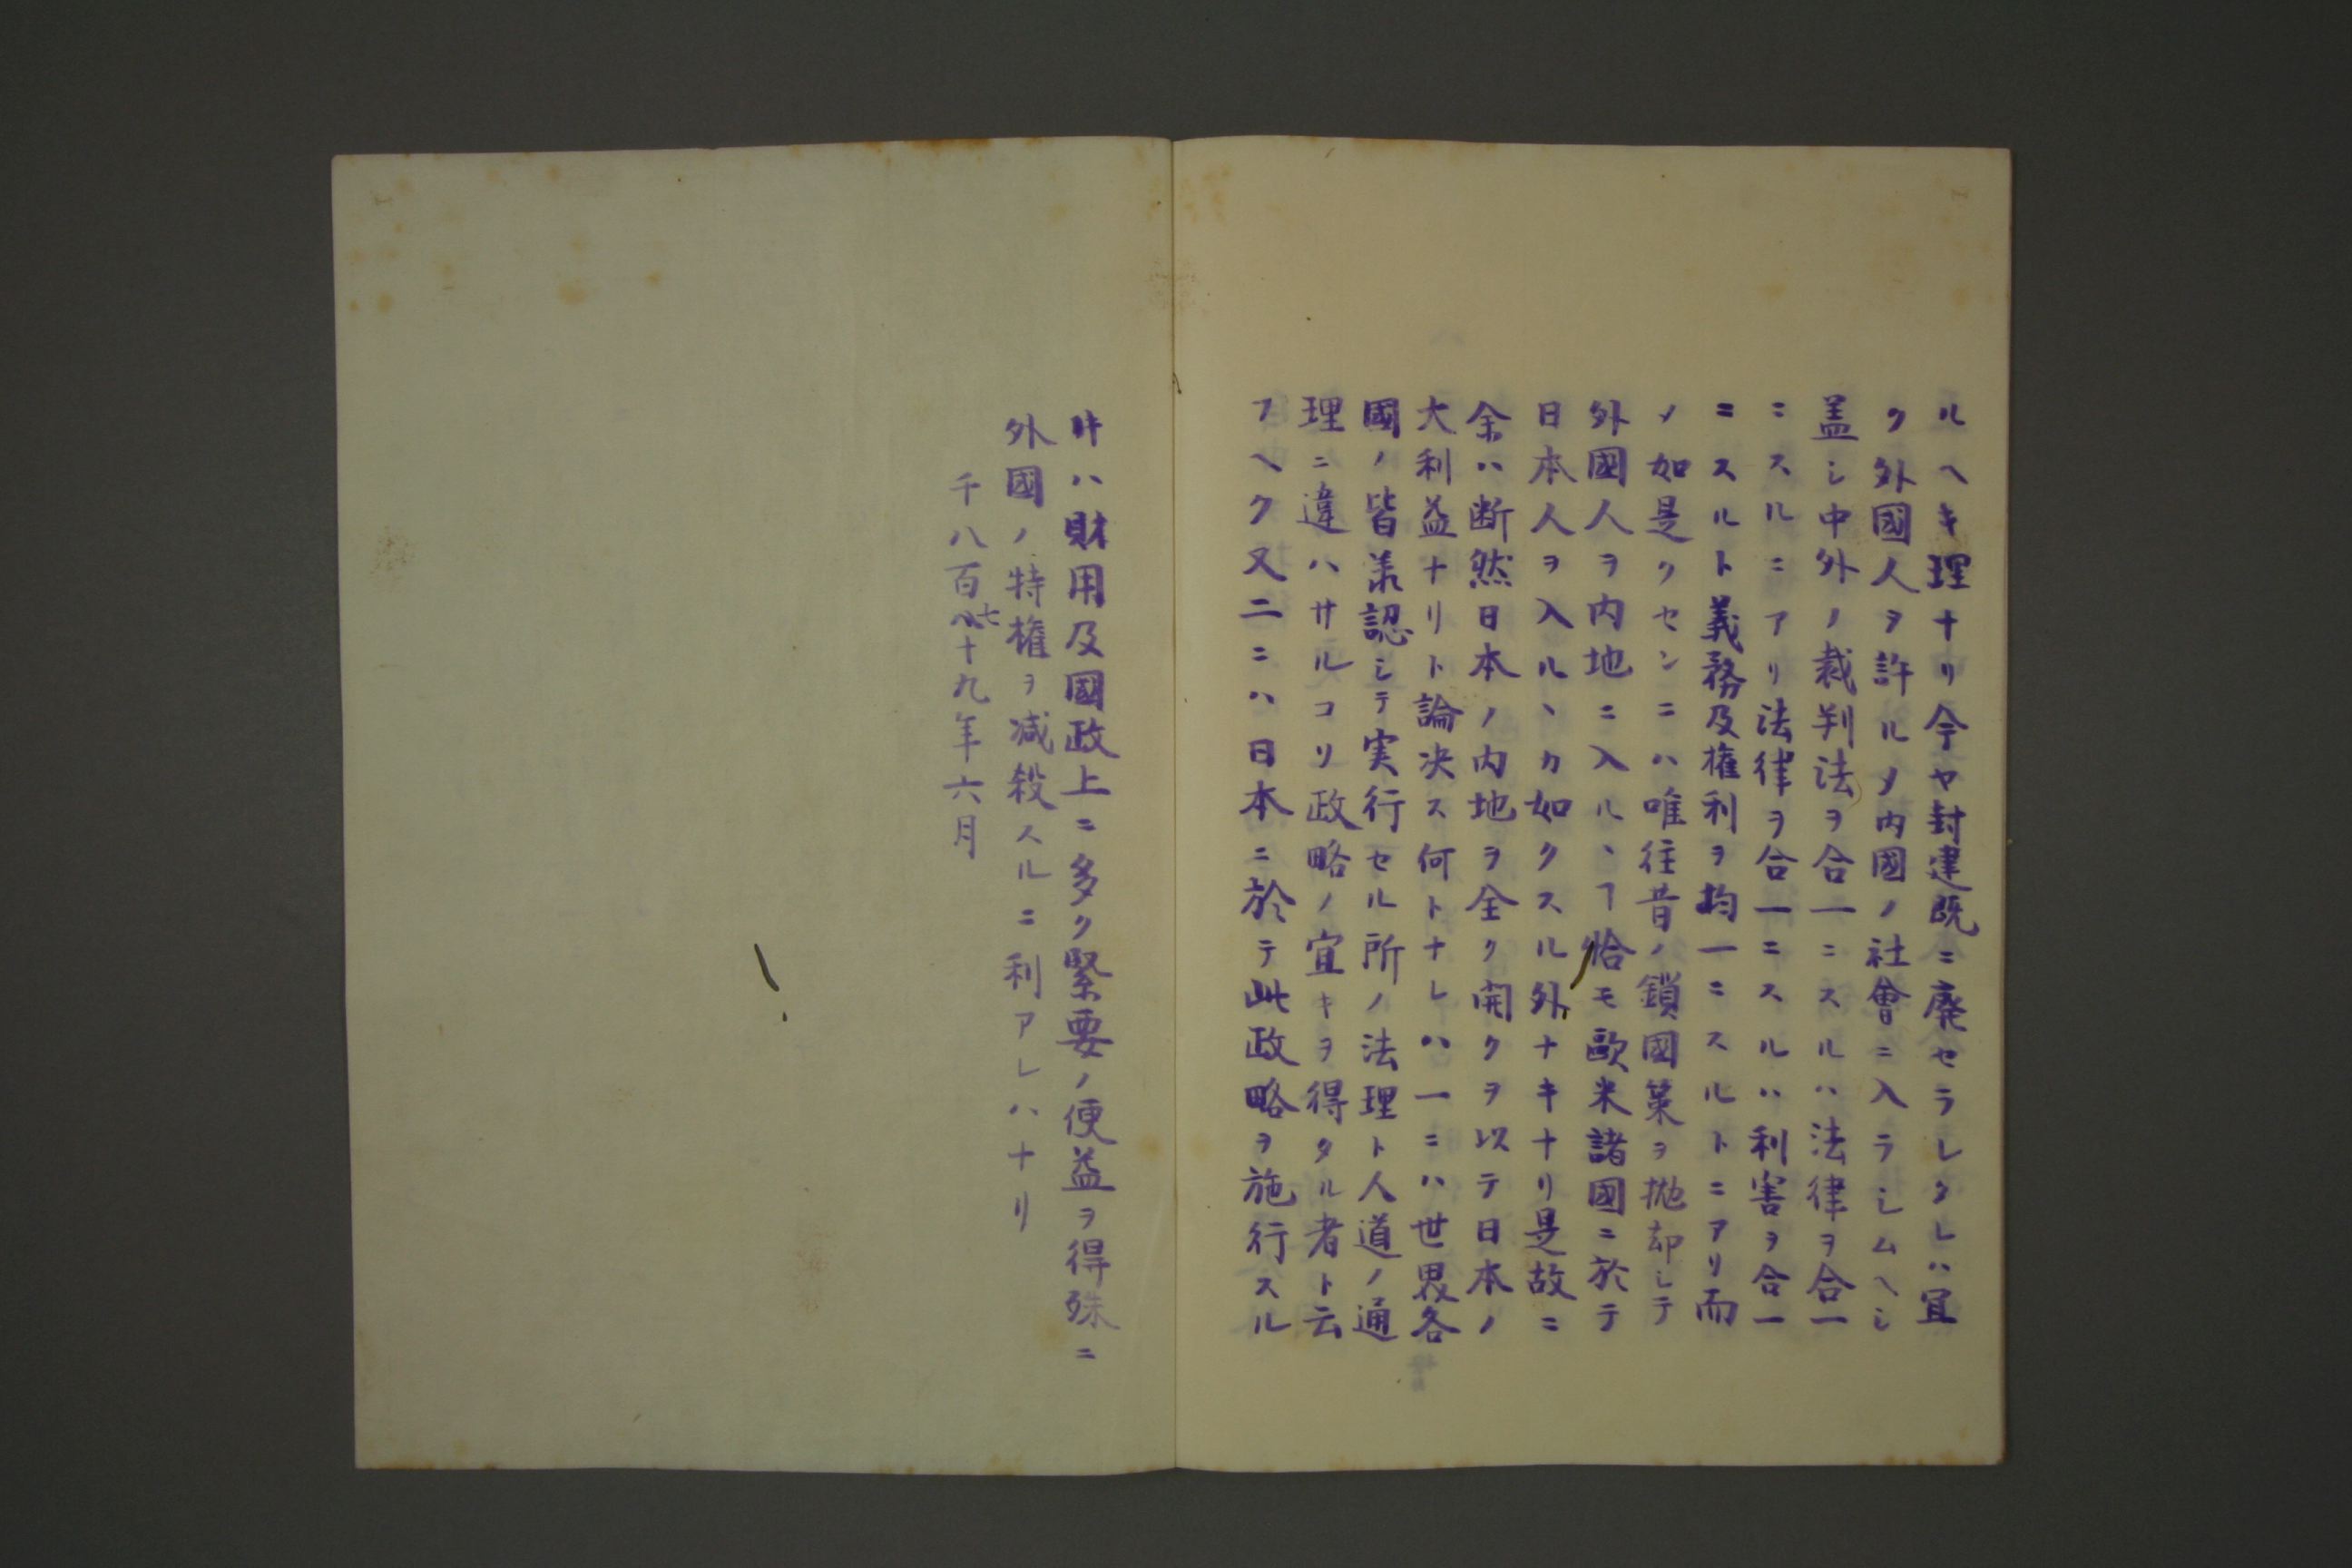 ルヘキ理ナリ今ヤ封建既ニ廃セラレタレハ宜
ク外國人ヲ許ルメ内國ノ社會ニ入ラシムヘシ
盖シ中外ノ裁判法ヲ合一ニスルハ法律ヲ合一
ニスルニアリ法律ヲ合一ニスルハ利害ヲ合一
ニスルト義務及権利ヲ均一ニスルトニアリ而
ノ如是クセンニハ唯往昔ノ鎖國策ヲ抛却シテ
外國人ヲ内地ニ入ルヽヿ恰モ歐米諸國ニ於テ
日本人ヲ入ルヽカ如クスル外ナキナリ是故ニ
余ハ断然日本ノ内地ヲ全ク開クヲ以テ日本ノ
大利益ナリト論决ス何トナレハ一ニハ世界各
國ノ皆羕認シテ実行セル所ノ法理ト人道ノ通
理ニ違ハサルコリ政略ノ宜キヲ得タル者ト云
フヘク又二ニハ日本ニ於テ此政略ヲ施行スル
片ハ財用及國政上ニ多ク緊要ノ便益ヲ得殊ニ
外國ノ特権ヲ减殺スルニ利アレハナリ
千八百七十九年六月